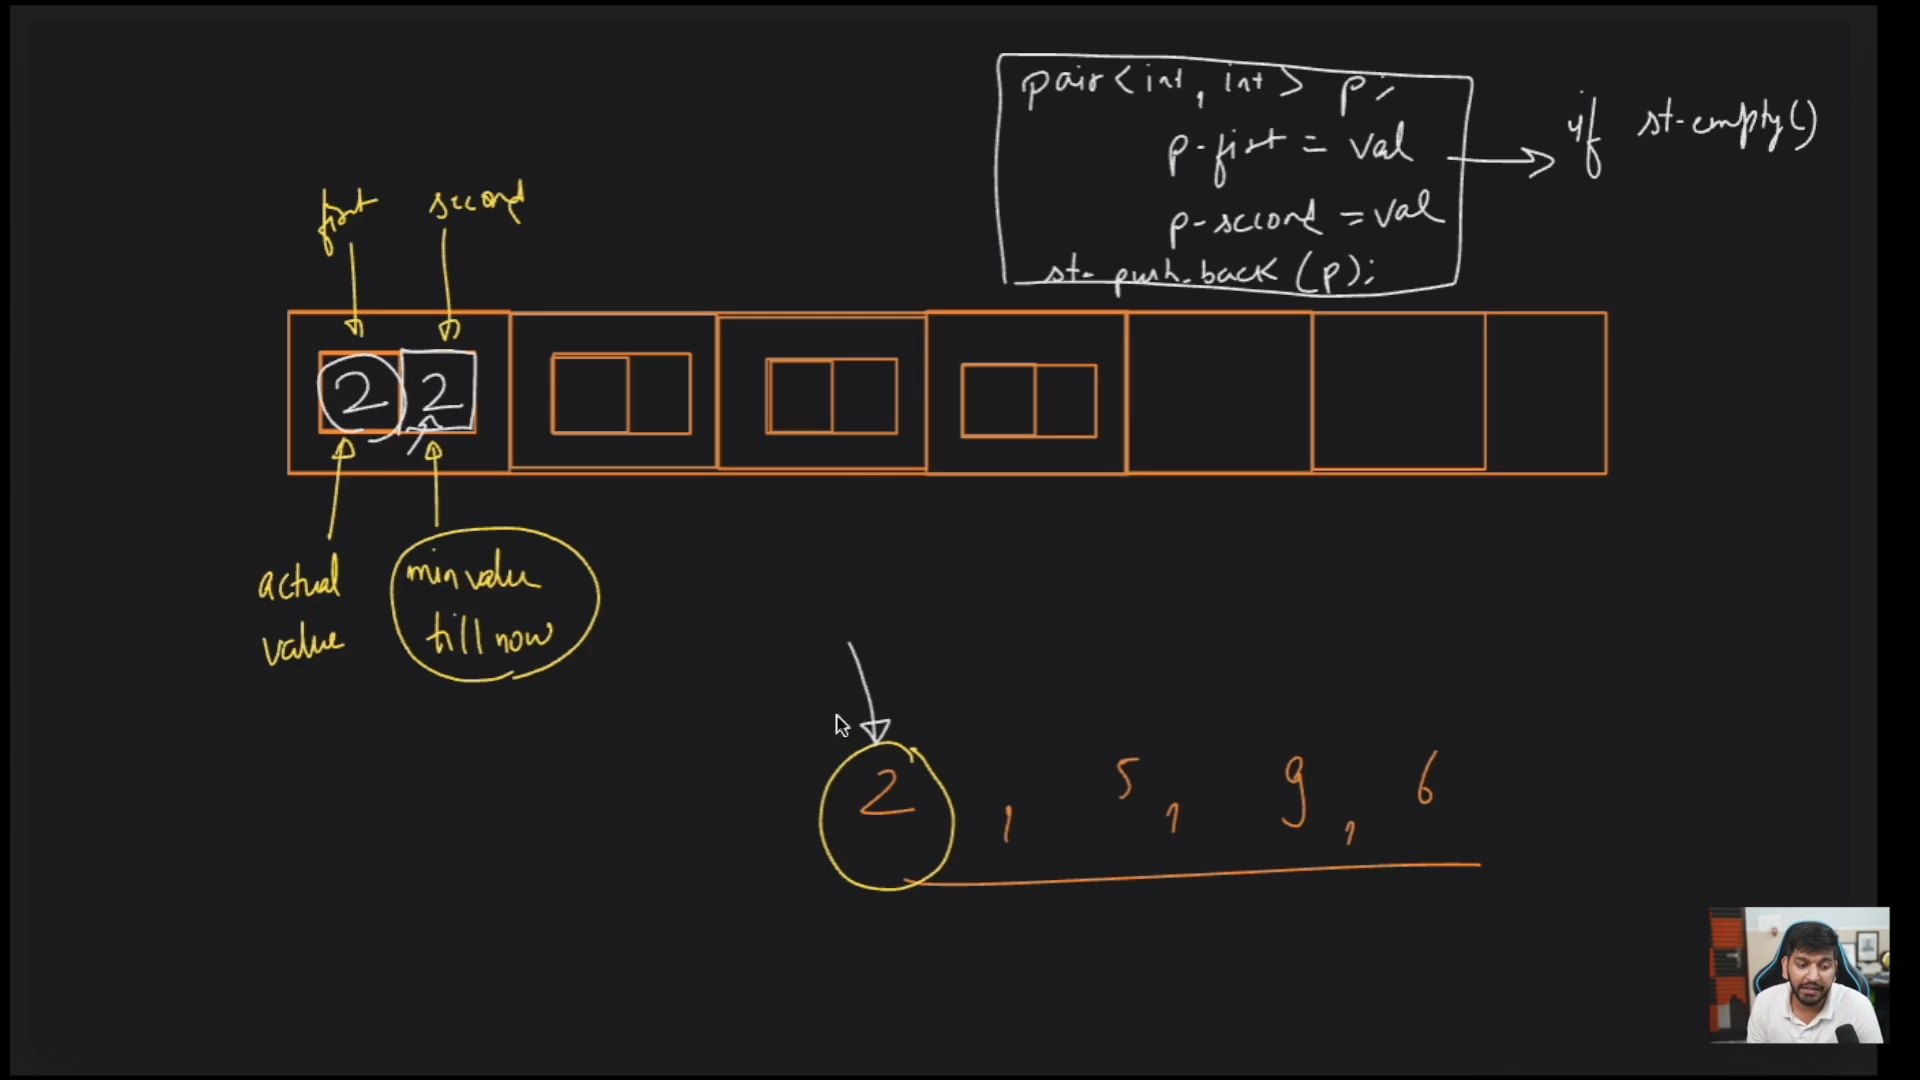 pair<int, int> p;
p.first = val
p.second = val
st.push_back(p);
if st.empty()
first second
2 2
actual
value
min value
till now
2, 5, 9, 6